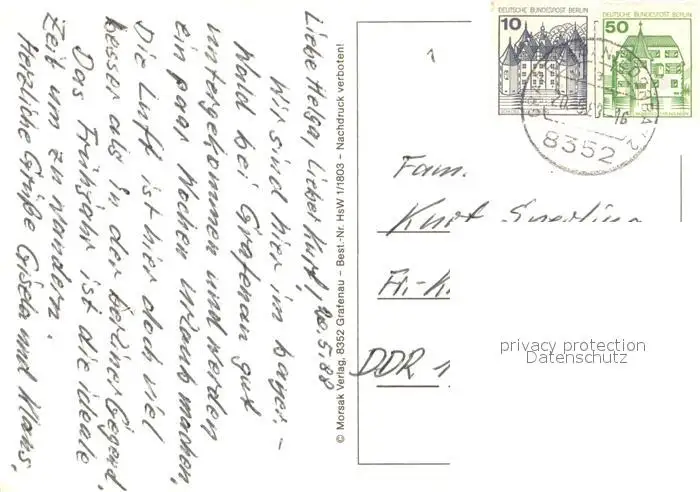 Liebe Helga, Lieber Kurt, 20.5.88
Wir sind hier im bayer.-
Wald bei Grafenau gut
untergekommen und werden
ein paar Wochen Urlaub machen.
Die Luft ist hier doch viel
besser als in der Berliner Gegend.
Das Frühjahr ist die ideale
Zeit um zu wandern.
Herzliche Grüße Gisela und Klaus.
© Morsak Verlag, 8352 Grafenau – Best.-Nr. HsW 1/1803 – Nachdruck verboten!
DEUTSCHE BUNDESPOST BERLIN
10
DEUTSCHE BUNDESPOST BERLIN
50
8352
Fam.
Kurt
Fr.-K.
DDR 1
privacy protection
Datenschutz